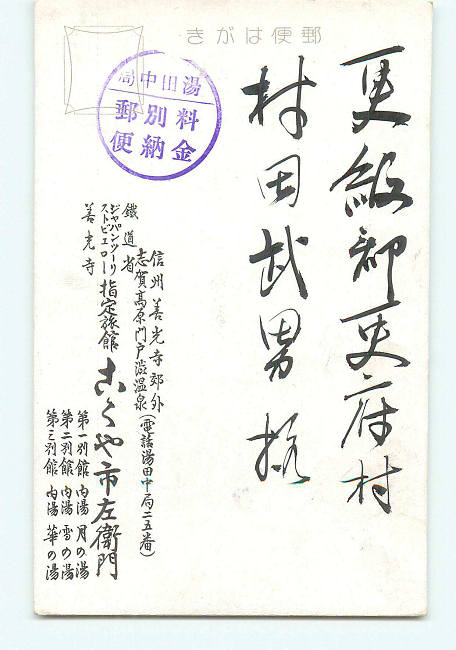 きがは便郵
湯田中局
料金
別納
郵便
更級郡更府村
村田武男様
信州善光寺郊外
志賀高原門戸渋温泉(電話湯田中局二五番)
鐵道省
ジャパンツーリ
ストビユロー
善光寺
指定旅館
こくや市左衛門
第一別館 内湯 月の湯
第二別館 内湯 雪の湯
第三別館 内湯 華の湯